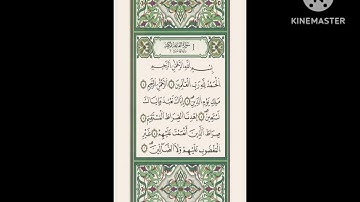 KINEMASTER
بِسْمِ اللَّهِ الرَّحْمَٰنِ الرَّحِيمِ
الْحَمْدُ لِلَّهِ رَبِّ الْعَالَمِينَ الرَّحْمَٰنِ الرَّحِيمِ
مَالِكِ يَوْمِ الدِّينِ إِيَّاكَ نَعْبُدُ وَإِيَّاكَ
نَسْتَعِينُ اهْدِنَا الصِّرَاطَ الْمُسْتَقِيمَ
صِرَاطَ الَّذِينَ أَنْعَمْتَ عَلَيْهِمْ غَيْرِ
الْمَغْضُوبِ عَلَيْهِمْ وَلَا الضَّالِّينَ